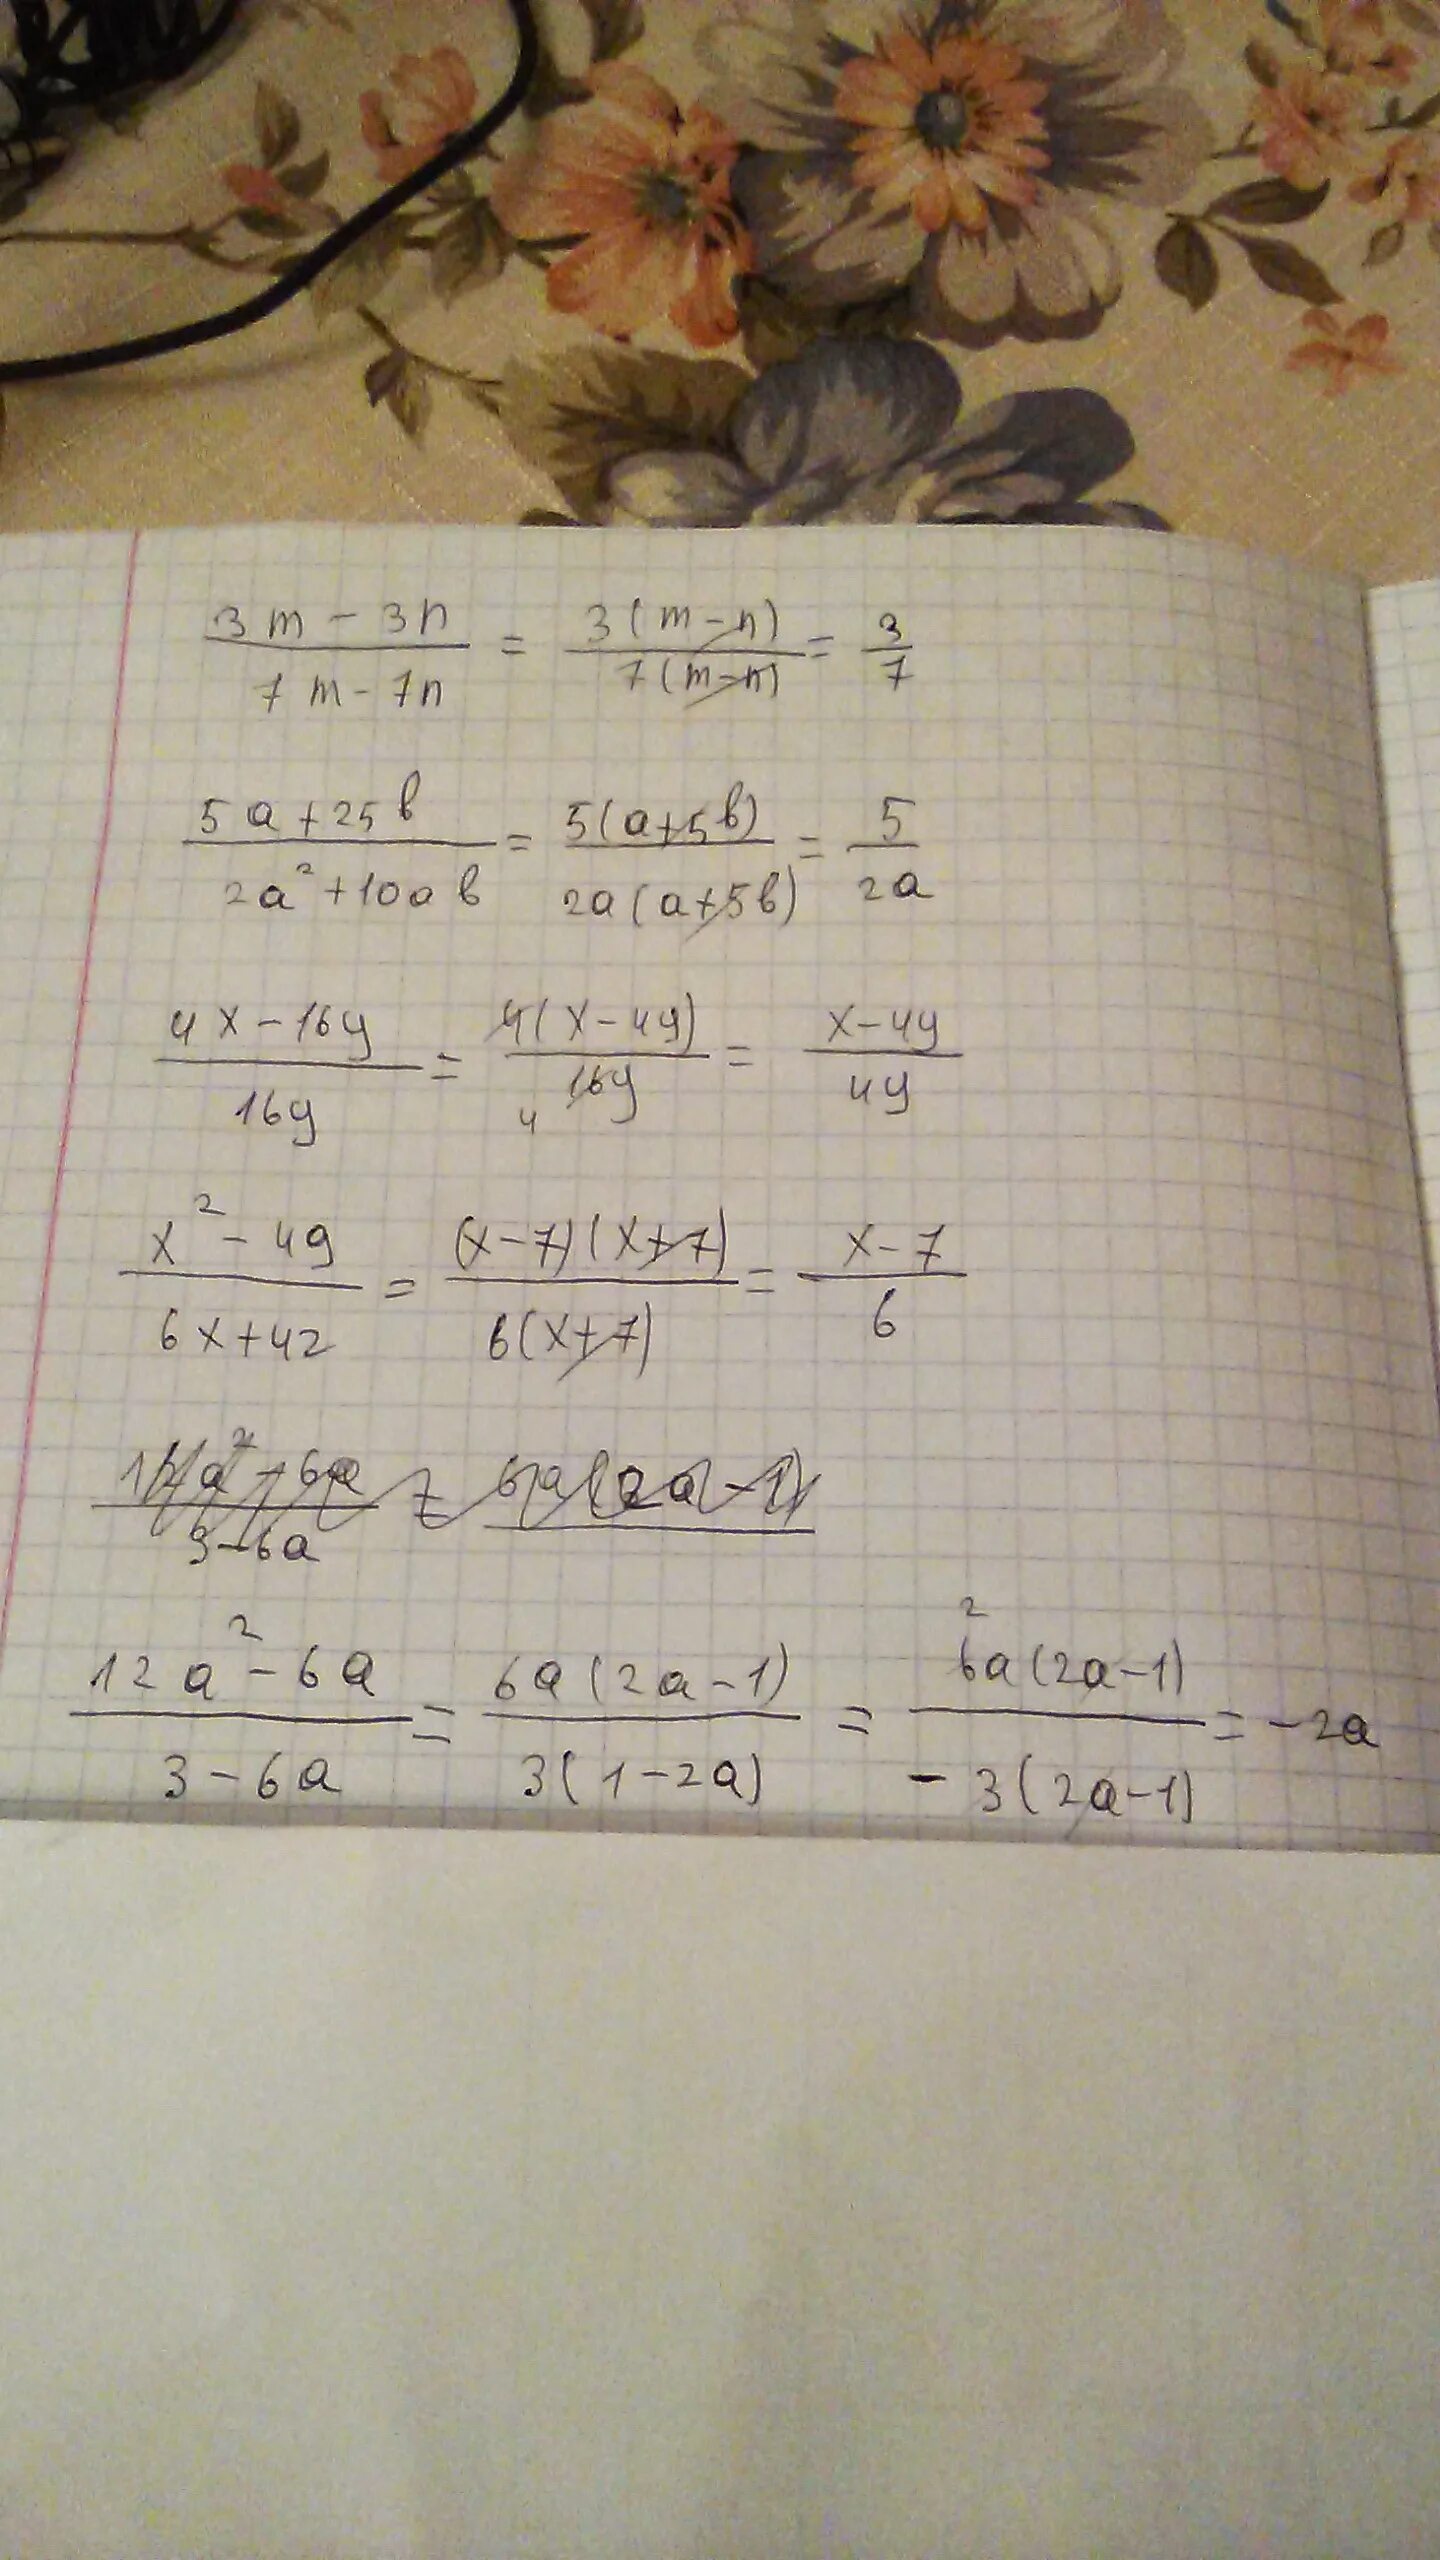 (3m - 3n)/(7m - 7n) = 3(m - n)/7(m - n) = 3/7
(5a + 25b)/(2a² + 10ab) = 5(a + 5b)/2a(a + 5b) = 5/2a
(4x - 16y)/16y = 4(x - 4y)/16y 4 = (x - 4y)/4y
(x² - 49)/(6x + 42) = (x - 7)(x + 7)/6(x + 7) = (x - 7)/6
(12a² - 6a)/(3 - 6a) = 6a(2a - 1)
(12a² - 6a)/(3 - 6a) = 6a(2a - 1)/3(1 - 2a) = 2 6a(2a - 1)/-3(2a - 1) = -2a